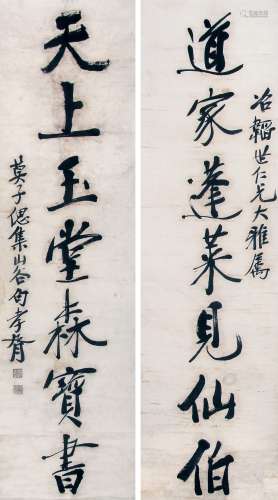 冶韜世仁兄大雅属
道家蓬莱見仙伯
天上玉堂森寶書
莫子偲集山谷句孝胥